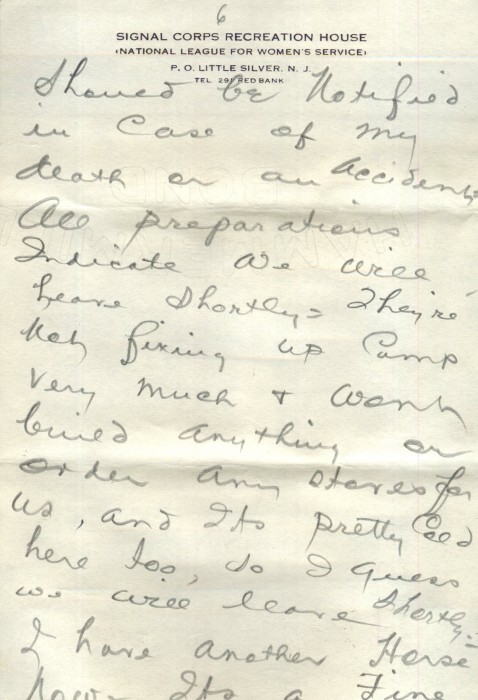 6
SIGNAL CORPS RECREATION HOUSE
(NATIONAL LEAGUE FOR WOMEN'S SERVICE)
P. O. LITTLE SILVER, N. J.
TEL. 291 RED BANK
Should be Notified
in Case of my
death or an Accident
All preparations
Indicate We will
leave Shortly = They're
Not fixing up Camp
Very much & Wont
build anything or
order any stoves for
us, and Its pretty Cold
here too, so I guess
we will leave Shortly =
I have another Horse
Now. Its a Fine